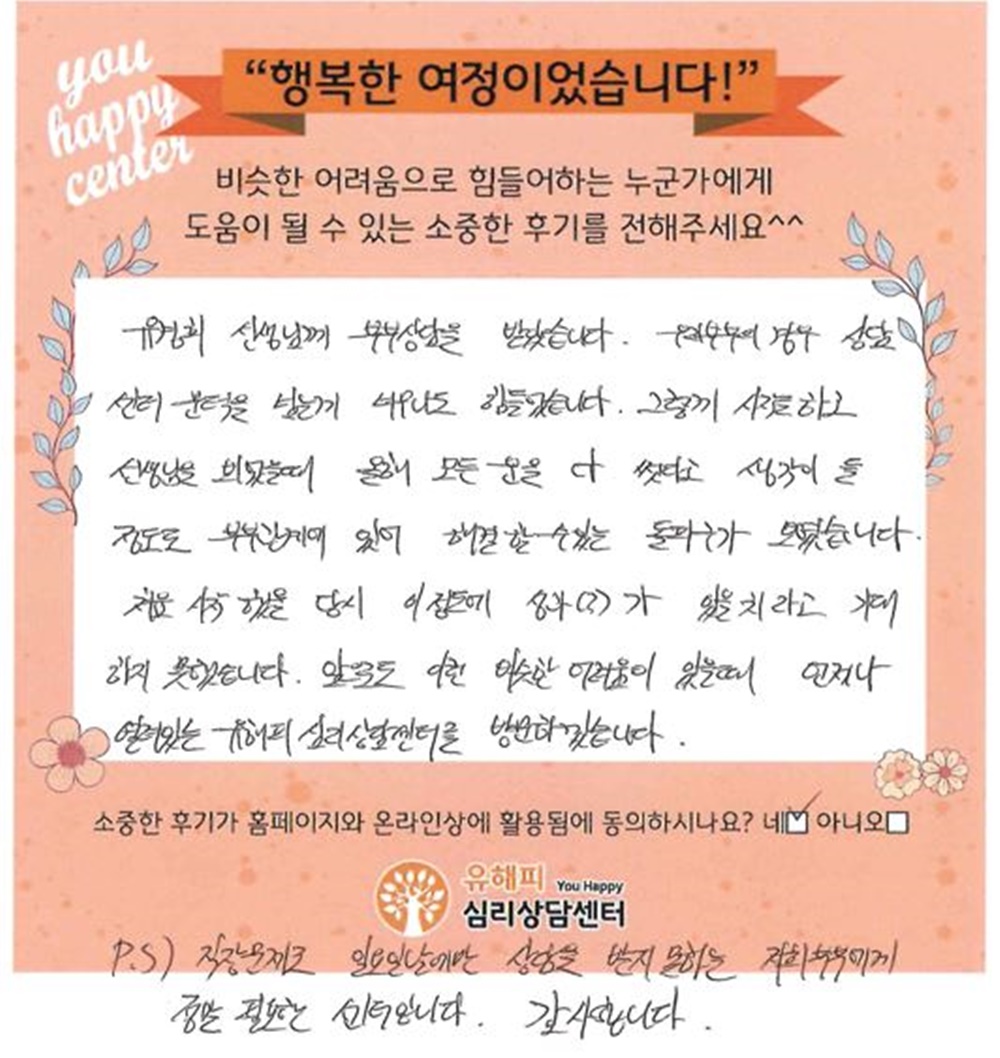 you
happy
center
“행복한 여정이었습니다!”
비슷한 어려움으로 힘들어하는 누군가에게
도움이 될 수 있는 소중한 후기를 전해주세요^^
선생님께 부부상담을 받았습니다. 우리부부의 경우 상담
센터 문턱을 넘는게 너무나도 힘들었습니다. 그렇게 시작하고
선생님을 뵈었을때 올해 모든 운을 다 썼다고 생각이 들
정도로 부부관계에 있어 해결할 수 있는 돌파구가 보였습니다.
처음 시작했을 당시 이 정도에 성과(?)가 있을지라고 기대
하지 못했습니다. 앞으로도 이런 비슷한 어려움이 있을때 언제나
열려있는 유해피 심리상담센터를 방문하겠습니다.
소중한 후기가 홈페이지와 온라인상에 활용됨에 동의하시나요? 네☑ 아니오□
유해피 You Happy
심리상담센터
P.S) 직장문제로 일요일날에만 상담을 받지 못하는 저희부부에게
정말 필요한 센터입니다. 감사합니다.